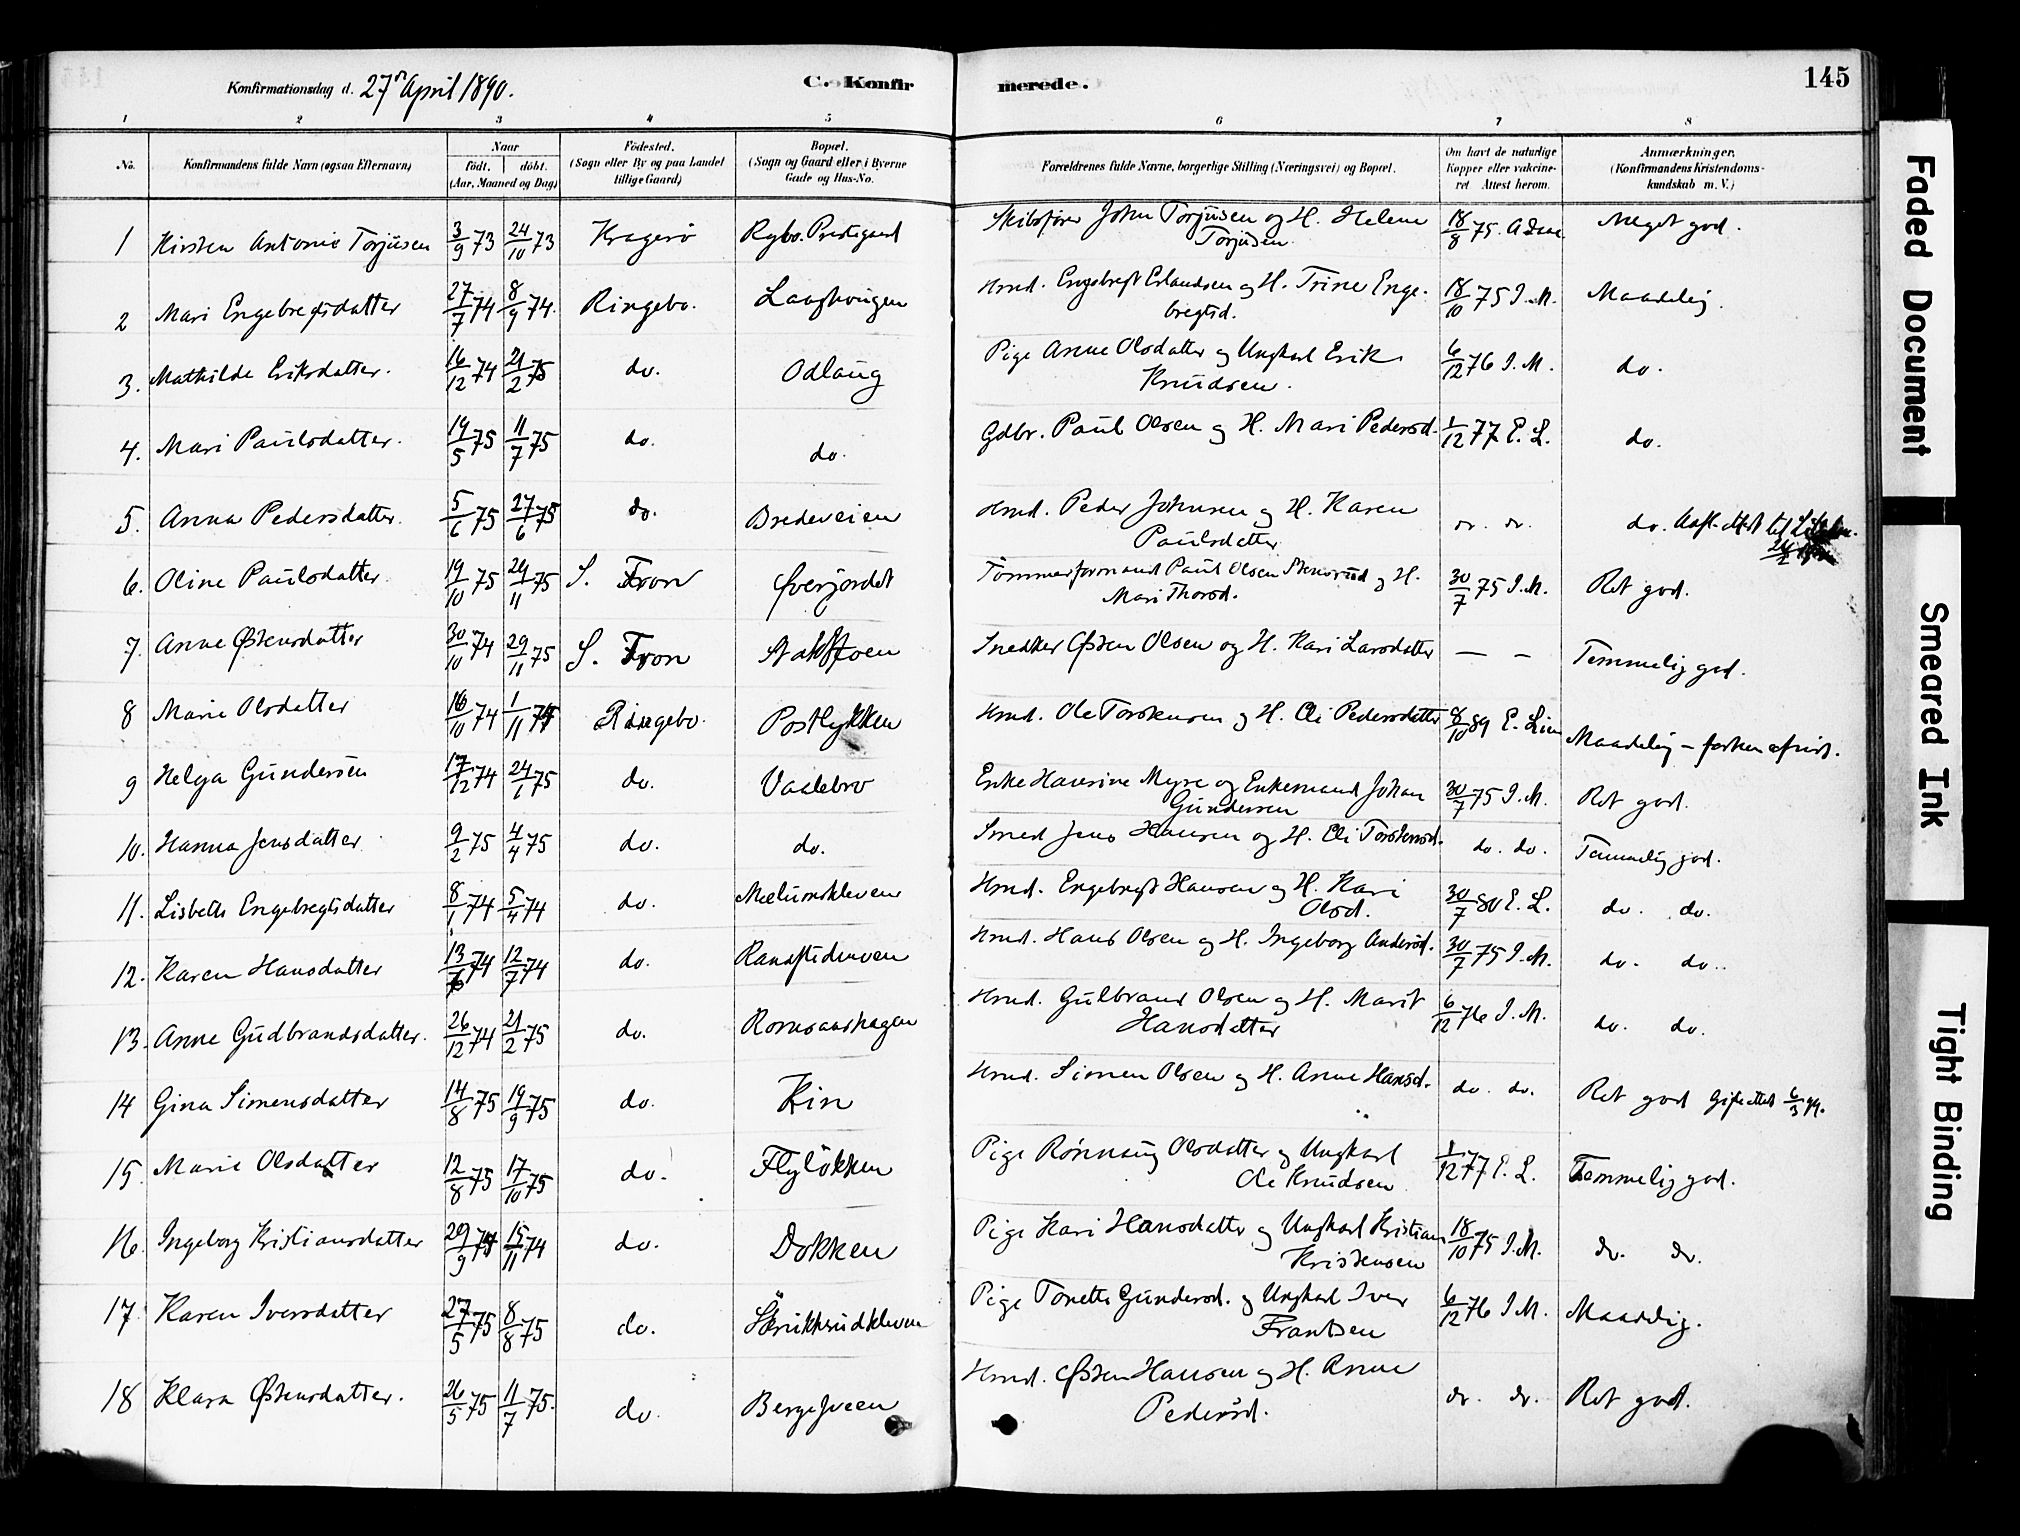 Konfirmationsdag d. 27n April 1890. C. Konfirmerede. 145
1 2 3 4 5 6 7 8
No. Konfirmandens fulde Navn (ogsaa Efternavn) Naar födt. döbt. (Aar, Maaned og Dag) Födested. (Sogn eller By og paa Landet tillige Gaard) Bopæl. (Sogn og Gaard eller i Byerne Gade og Hus-No. Forældrenes fulde Navne, borgerlige Stilling (Næringsvei) og Bopæl. Om havt de naturlige Kopper eller vakcineret. Attest herom. Anmærkninger. (Konfirmandens Kristendomskundskab m. V.)
1 Kirsten Antonie Torjusen 3/9 73 24/10 73 Kragerö Rgbo. Prestegaard Skibsfører John Torjusen og H. Helene Torjusen 18/8 75. Meget god.
2 Mari Engebregtsdatter 27/7 74 8/9 74. Ringebo. Hmd. Engebregt Erlandsen og H. Trine Engebregtsd. 18/10 75 I. M. Maadelig.
3. Mathilde Eriksdatter. 16/12 74 21/2 75 do. Odlaug Pige Anne Olsdatter og Ungkarl Erik Knudsen. 6/12 76 I. M. do.
4. Mari Paulsdatter. 19/5 75 11/7 75 do. do. Gdbr. Paul Olsen og H. Mari Pedersd. 1/12 77 E. L. do.
5. Anna Pedersdatter. 5/6 75 27/6 75 do. Bredeveien Hmd. Peder Johnsen og H. Karen Paulsdatter do. do. do.
6. Oline Paulsdatter. 19/10 75 29/11 75 S. Fron Øverjordet Tømmerformand Paul Olsen Stensrud og H. Mari Thorsd. 30/7 75 I. M. Ret god.
7. Anne Østensdatter 30/10 74 29/11 75 S. Fron Stakstoen Snedker Østen Olsen og H. Kari Larsdatter — — Temmelig god.
8 Marie Olsdatter 16/10 74 1/11 74 Ringebo. Postlykken Hmd. Ole Torstensen og H. Eli Pedersdatter 8/10 89 E. Lien Maadelig –
9 Helga Gundersen 17/12 74 24/1 75 do. Vaalebro Enke Haverine Myre og Enkemand Johan Gundersen 30/7 75 I. M. Ret god.
10. Hanna Jensdatter 9/2 75 4/4 75 do. do. Smed Jens Hansen og H. Eli Torstensd. do. do. Temmelig god.
11. Lisbeth Engebregtsdatter 8/1 74 5/4 74 do. Mælumskleven Hmd. Engebregt Hansen og H. Kari Olsd. 30/7 80 E. L. do. do.
12. Karen Hansdatter 13/6 74 12/7 74 do. Hmd. Hans Olsen og H. Ingeborg Andersd. 30/7 75 I. M. do. do.
13. Anne Gudbrandsdatter. 26/12 74 21/2 75 do. Romsaashagen Hmd. Gulbrand Olsen og H. Marit Hansdatter 6/12 76 I. M. do. do.
14 Gina Simensdatter 14/8 75 19/9 75 do. Kin Hmd. Simen Olsen og H. Anne Hansd. do. do. Ret god Gifteattest 6/3 99.
15. Marie Olsdatter 12/8 75 17/10 75 do. Flyløkken Pige Rønnaug Olsdatter og Ungkarl Ole Knudsen 1/12 77 E. L. Temmelig god.
16. Ingeborg Kristiansdatter 29/9 74 15/11 74 do. Dokken Pige Kari Hansdatter og Ungkarl Kristian Kristensen 18/10 75 I. M. do. do.
17. Karen Iversdatter 27/5 75 8/8 75 do. Pige Tonette Gundersd. og Ungkarl Iver Frantsen 6/12 76 I. M. Maadelig.
18 Klara Østensdatter. 26/5 75 11/7 75. do. Bergesveen Hmd. Østen Hansen og H. Anne Pedersd. do. do. Ret god.
Faded Document
Smeared Ink
Tight Binding